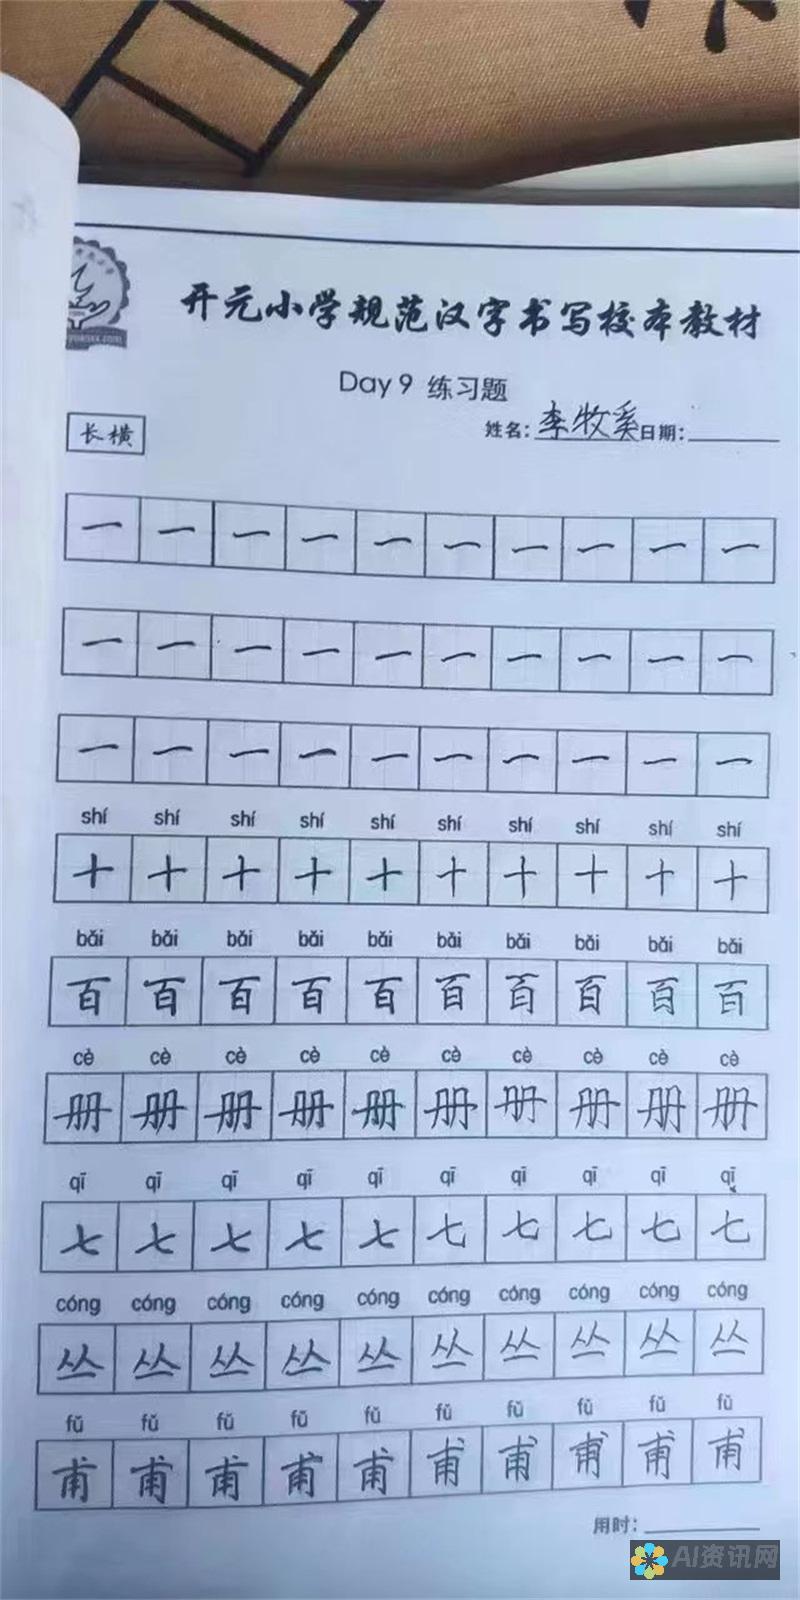 开元小学规范汉字书写校本教材
Day 9 练习题
姓名：李牧奚 日期：
长横
一 一 一 一 一 一 一 一 一 一
一 一 一 一 一 一 一 一 一 一
一 一 一 一 一 一 一 一 一 一
shí shí shí shí shí shí shí shí shí shí
十 十 十 十 十 十 十 十 十 十
bǎi bǎi bǎi bǎi bǎi bǎi bǎi bǎi bǎi bǎi
百 百 百 百 百 百 百 百 百 百
cè cè cè cè cè cè cè cè cè cè
册 册 册 册 册 册 册 册 册 册
qī qī qī qī qī qī qī qī qī qī
七 七 七 七 七 七 七 七 七 七
cóng cóng cóng cóng cóng cóng cóng cóng cóng cóng
丛 丛 丛 丛 丛 丛 丛 丛 丛 丛
fǔ fǔ fǔ fǔ fǔ fǔ fǔ fǔ fǔ fǔ
甫 甫 甫 甫 甫 甫 甫 甫 甫 甫
用时：
AI资讯网